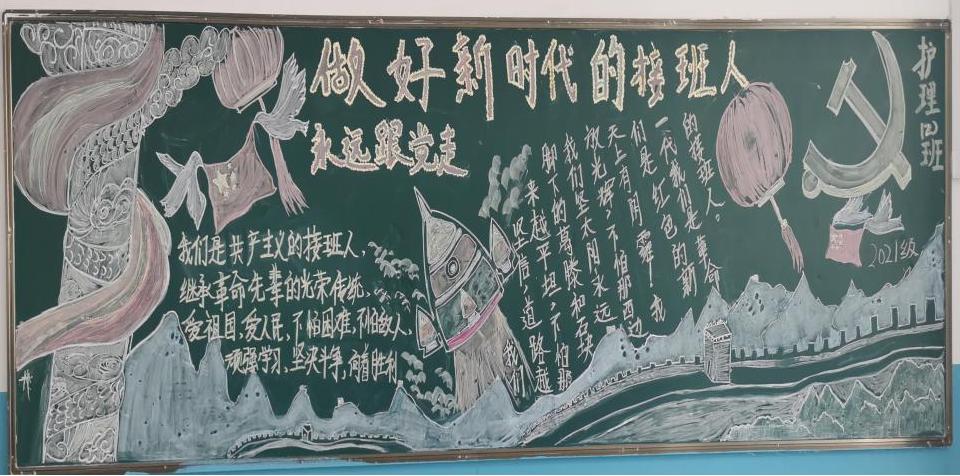 做好新时代的接班人
永远跟党走
护理四班
2021级
我们是共产主义的接班人，
继承革命先辈的光荣传统，
爱祖国，爱人民，不怕困难，不怕敌人，
顽强学习，坚决斗争，向着胜利
我们
坚信，道路越
来越平坦，不怕那
脚下的葛藤和石块
我们坚太阳永远
放光辉，不怕那西边
天上有阴霾！我
们是红色的新
一代我们是革命
的接班人。